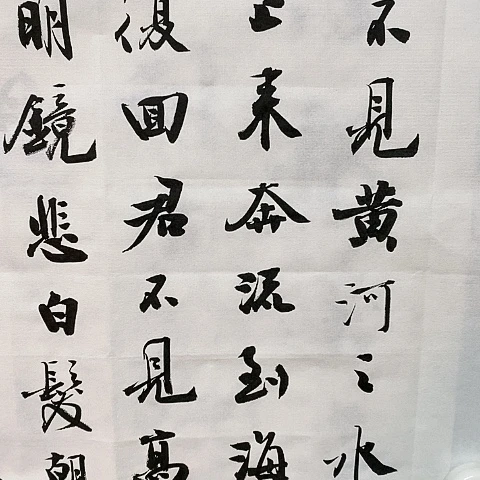 不見黃河之水
上来奔流到海
復回君不見高
明鏡悲白髮朝